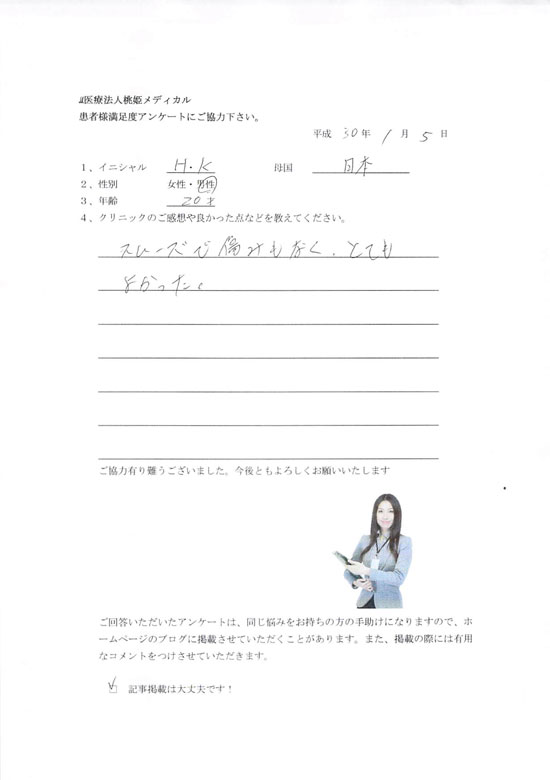 医療法人桃姫メディカル
患者様満足度アンケートにご協力下さい。
平成 30年 1月 5日
1、イニシャル H.K 母国 日本
2、性別 女性・男性
3、年齢 20才
4、クリニックのご感想や良かった点などを教えてください。
スムーズで痛みもなく、とても
よかった。
ご協力有り難うございました。今後ともよろしくお願いいたします
ご回答いただいたアンケートは、同じ悩みをお持ちの方の手助けになりますので、ホ
ームページのブログに掲載させていただくことがあります。また、掲載の際には有用
なコメントをつけさせていただきます。
記事掲載は大丈夫です！